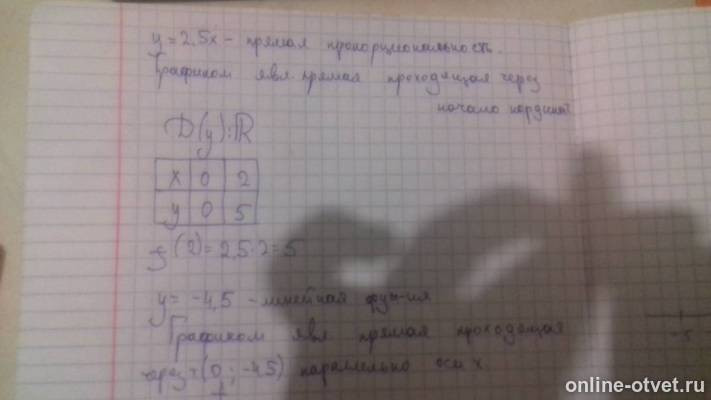 y = 2,5x - прямая пропорциональность.
Графиком явл. прямая проходящая через
начало кординат
D(y):R
x 0 2
y 0 5
f(2) = 2,5·2 = 5
y = -4,5 - линейная фун-ия
Графиком явл прямая проходящая
через т(0; -4,5) параллельно оси x.
-5
online-otvet.ru